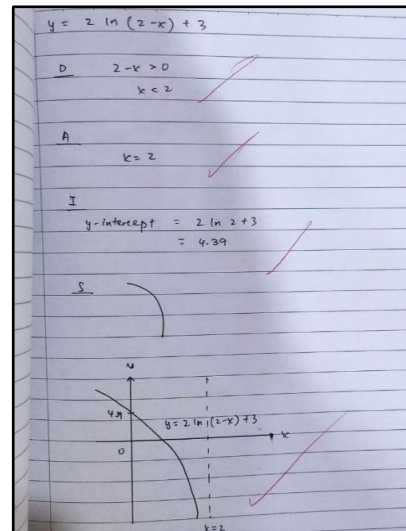 y = 2 ln (2-x) + 3
D 2-x > 0
x < 2
A
x = 2
I
y-intercept = 2 ln 2 + 3
= 4.39
S
y = 2 ln (2-x) + 3
x
0
x = 2